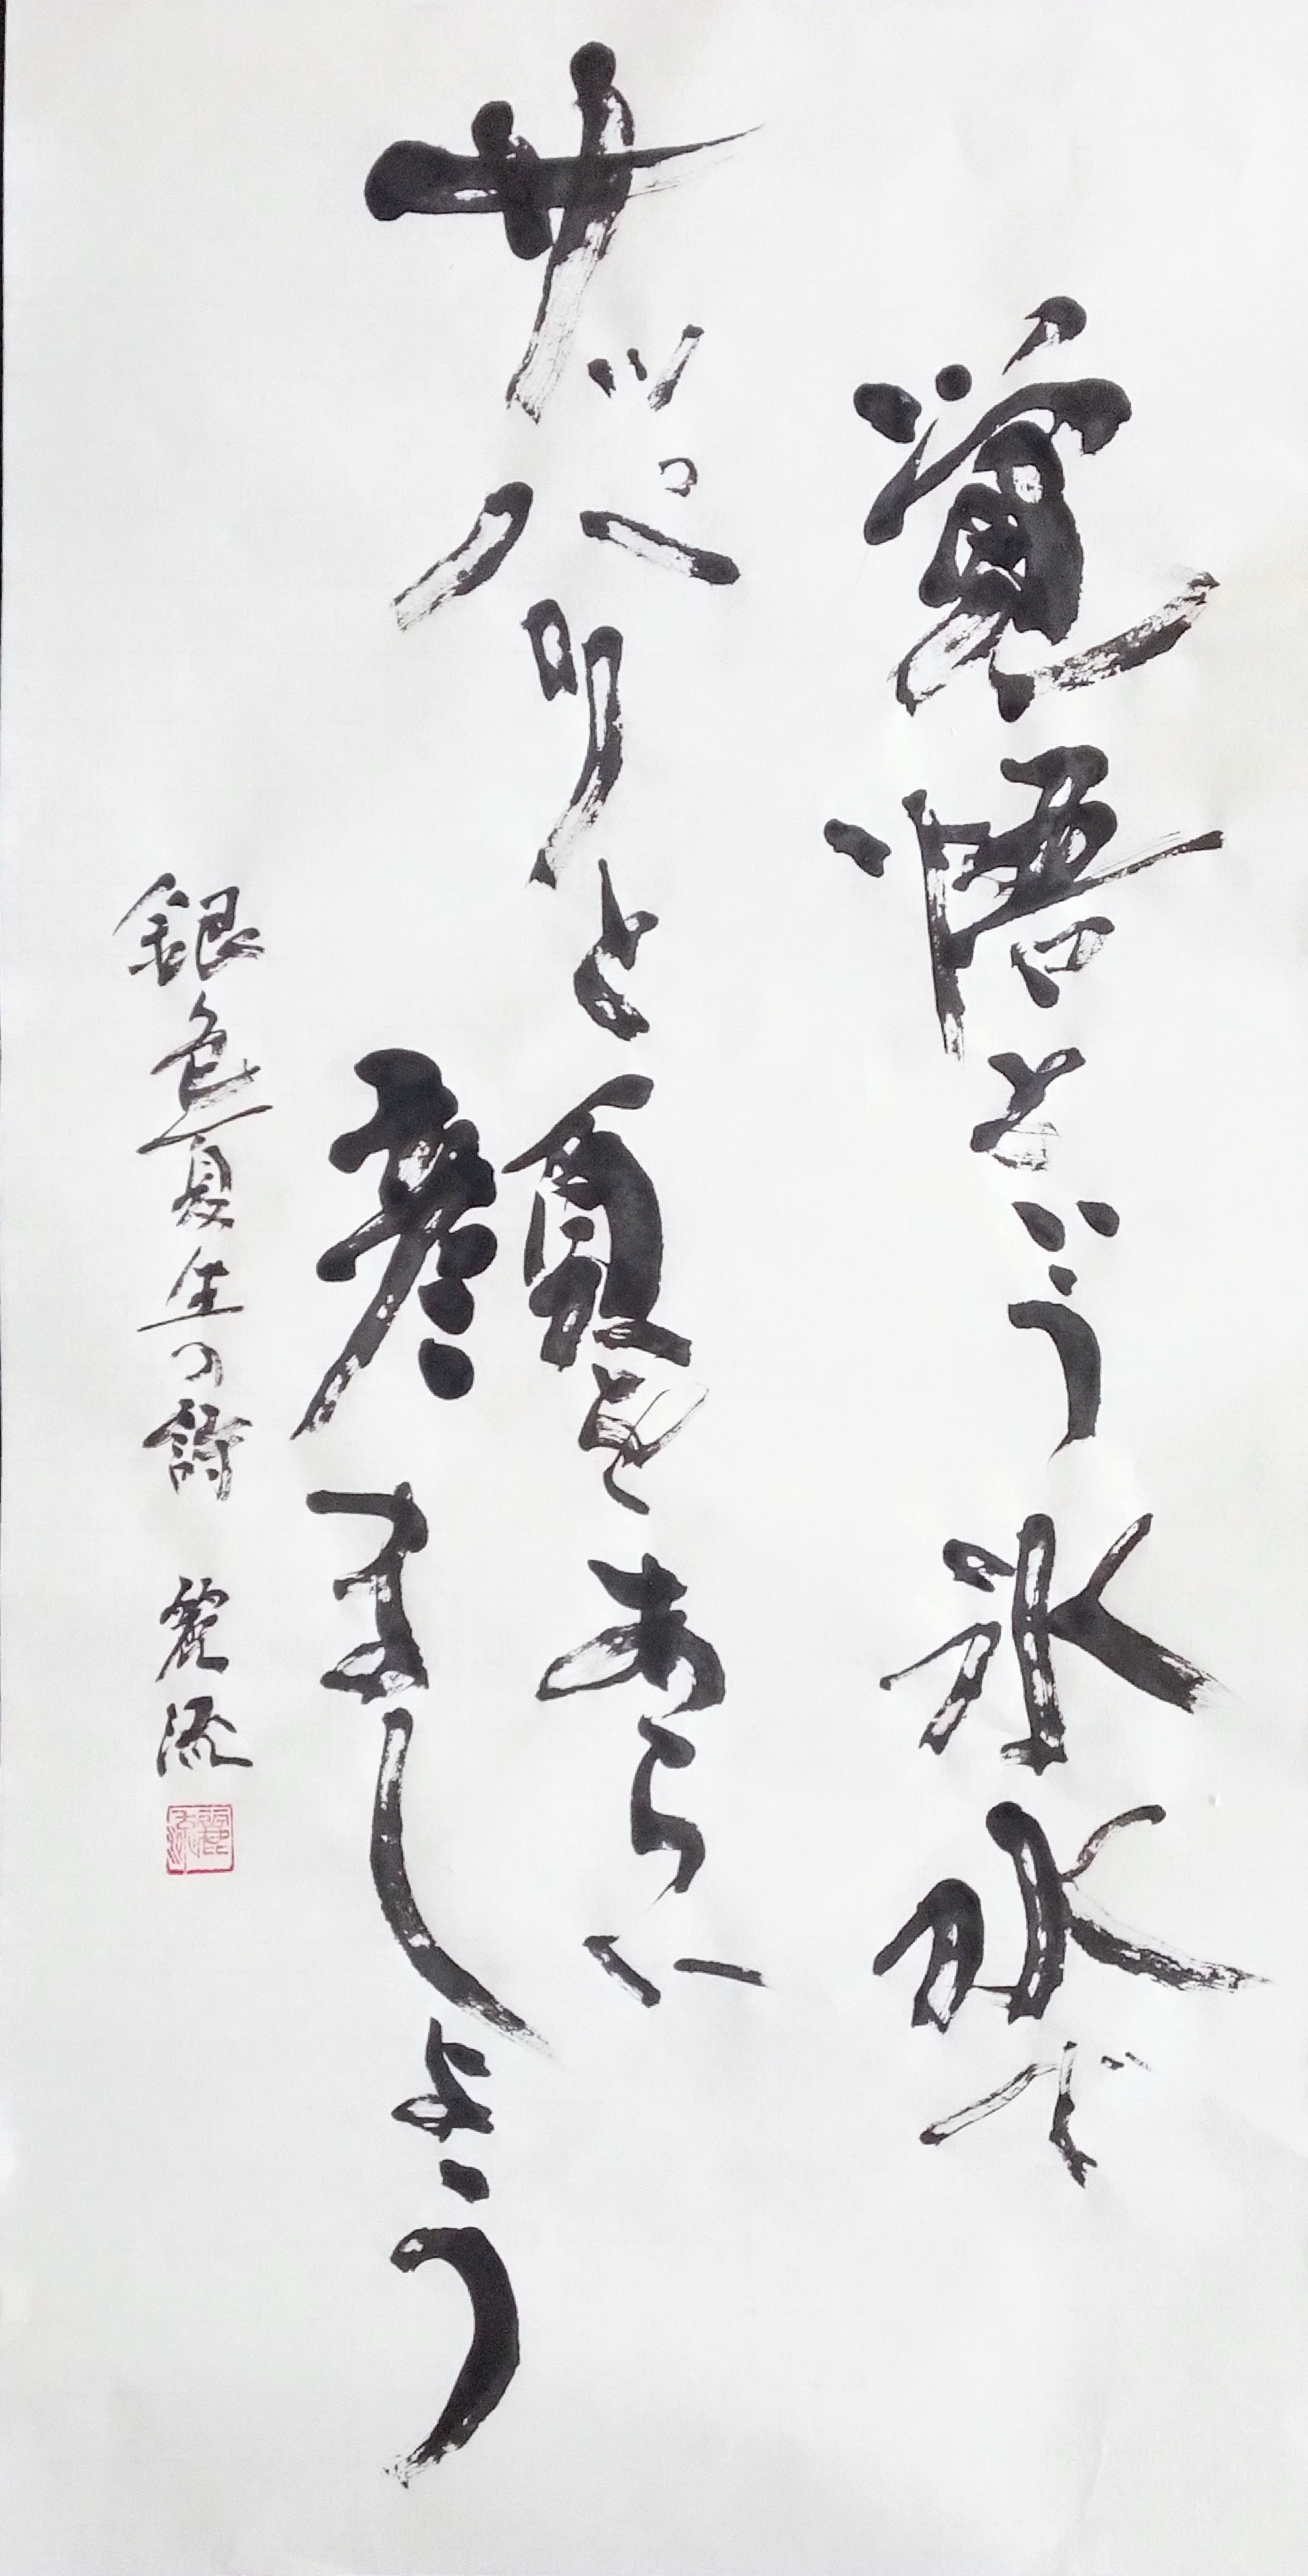 覚悟という氷水で
サッパリと顔をあらい
ましょう
銀色夏生の詩 麗流
麗流